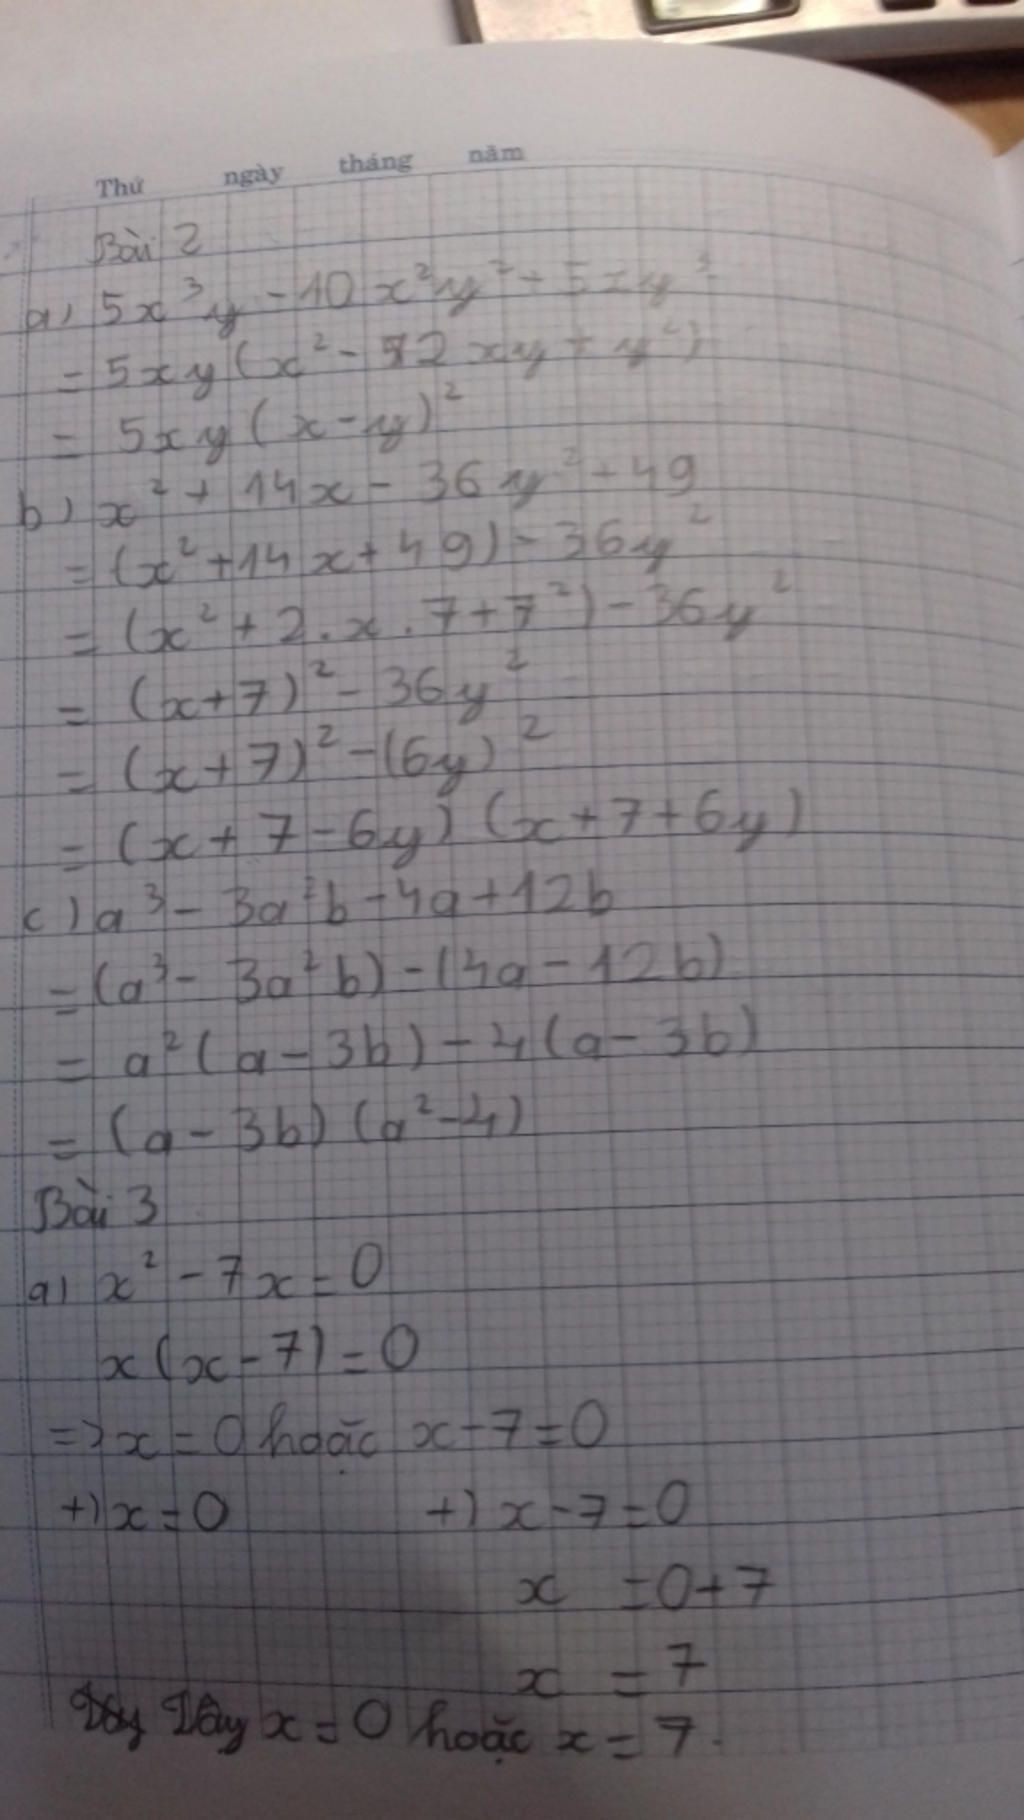 Thứ ngày tháng năm
Bài 2
a) 5x³y - 10x²y² + 5xy³
= 5xy(x² - 2xy + y²)
= 5xy(x - y)²
b) x² + 14x - 36y² + 49
= (x² + 14x + 49) - 36y²
= (x² + 2.x.7 + 7²) - 36y²
= (x + 7)² - 36y²
= (x + 7)² - (6y)²
= (x + 7 - 6y) (x + 7 + 6y)
c) a³ - 3a²b - 4a + 12b
= (a³ - 3a²b) - (4a - 12b)
= a²(a - 3b) - 4(a - 3b)
= (a - 3b) (a² - 4)
Bài 3
a) x² - 7x = 0
x(x - 7) = 0
=> x = 0 hoặc x - 7 = 0
+) x = 0 +) x - 7 = 0
x = 0 + 7
x = 7
Vậy x = 0 hoặc x = 7.